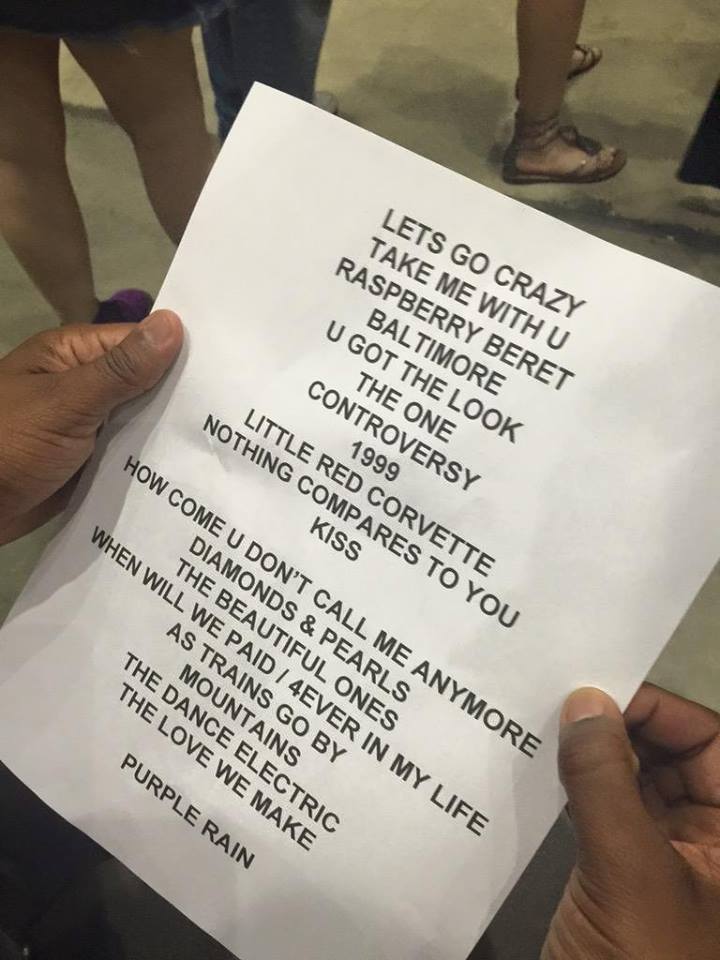 LETS GO CRAZY
TAKE ME WITH U
RASPBERRY BERET
BALTIMORE
U GOT THE LOOK
THE ONE
CONTROVERSY
1999
LITTLE RED CORVETTE
NOTHING COMPARES TO YOU
KISS
HOW COME U DON'T CALL ME ANYMORE
DIAMONDS & PEARLS
THE BEAUTIFUL ONES
WHEN WILL WE PAID / 4EVER IN MY LIFE
AS TRAINS GO BY
MOUNTAINS
THE DANCE ELECTRIC
THE LOVE WE MAKE
PURPLE RAIN